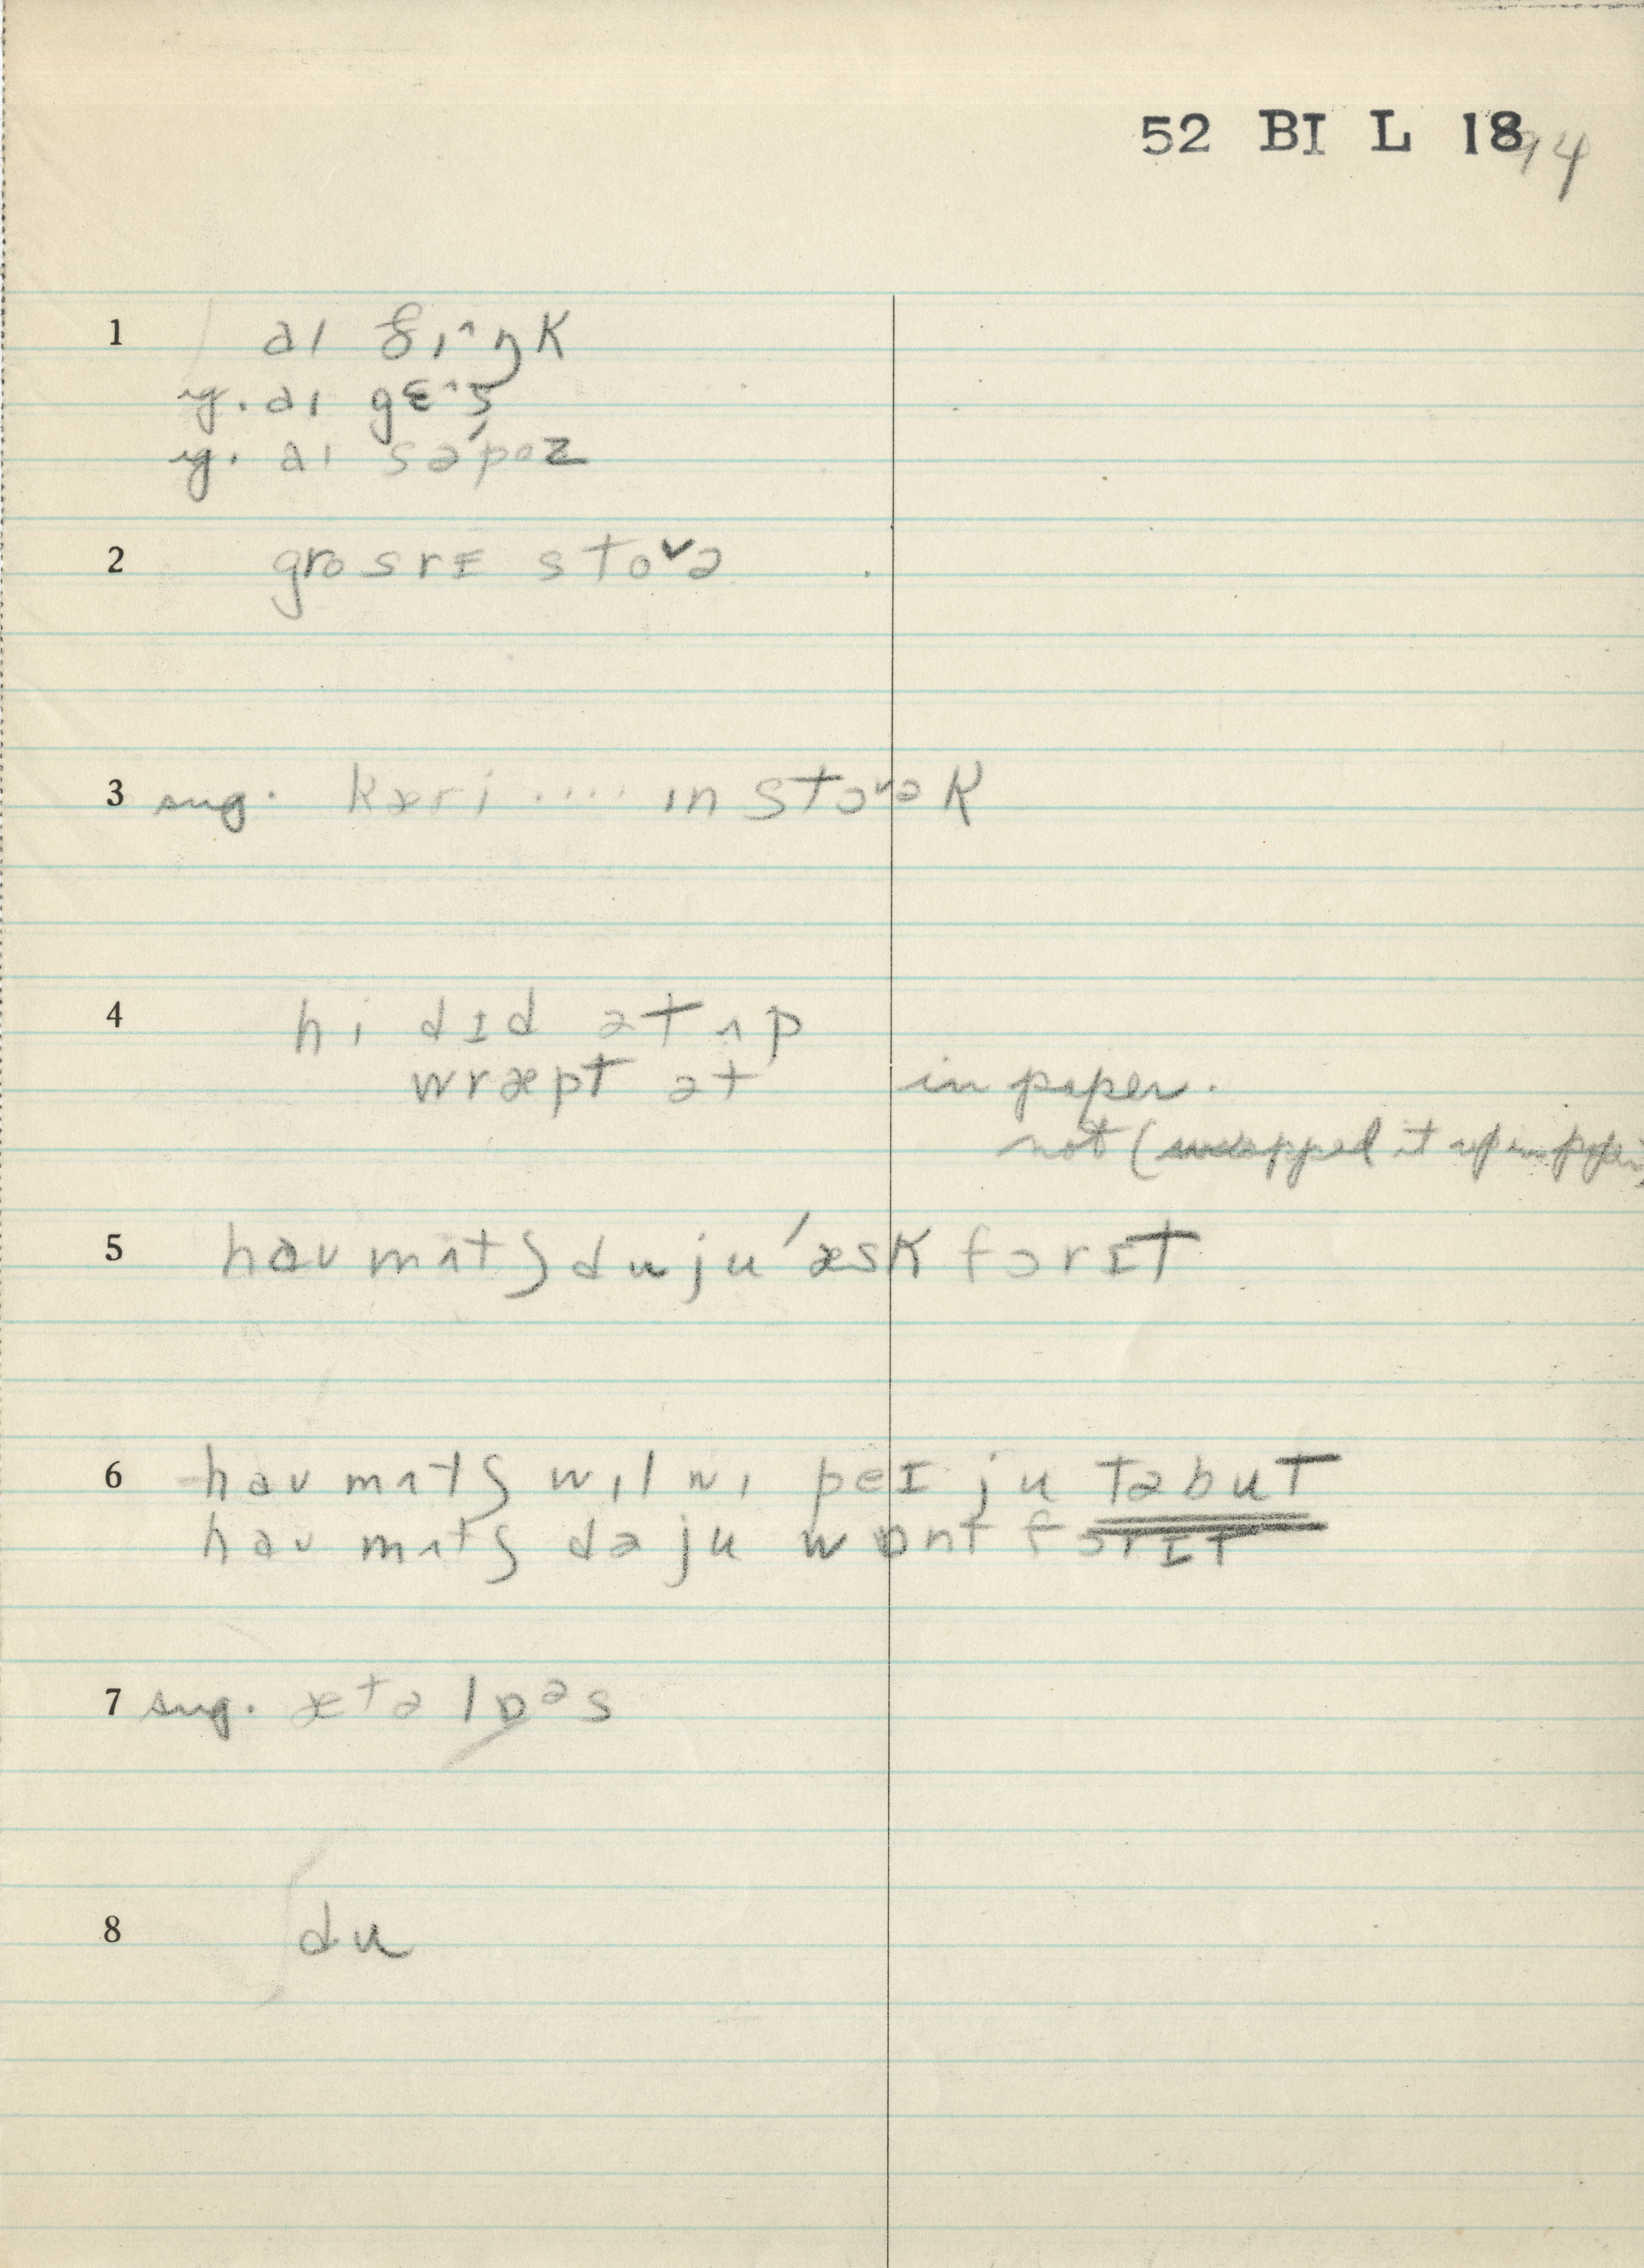 52 BI L 18
94
1 aɪ θɪ^ŋk
r. aɪ gɛ^s
r. aɪ səˈpoz
2 grosrɪ sto˅ə
3 sug. kæri .... ɪn sto˅ək
4 hi dɪd ət ʌp
wræpt ət in paper.
not (wrapped it up in paper)
5 haʊ mʌtʃ du ju ˈæsk fɔr ɪt
6 haʊ mʌtʃ wɪl wi peɪ ju təbut
haʊ mʌtʃ də ju wɒnt fɔr ɪt
7 sug. æt ə lɒᵊs
8 du